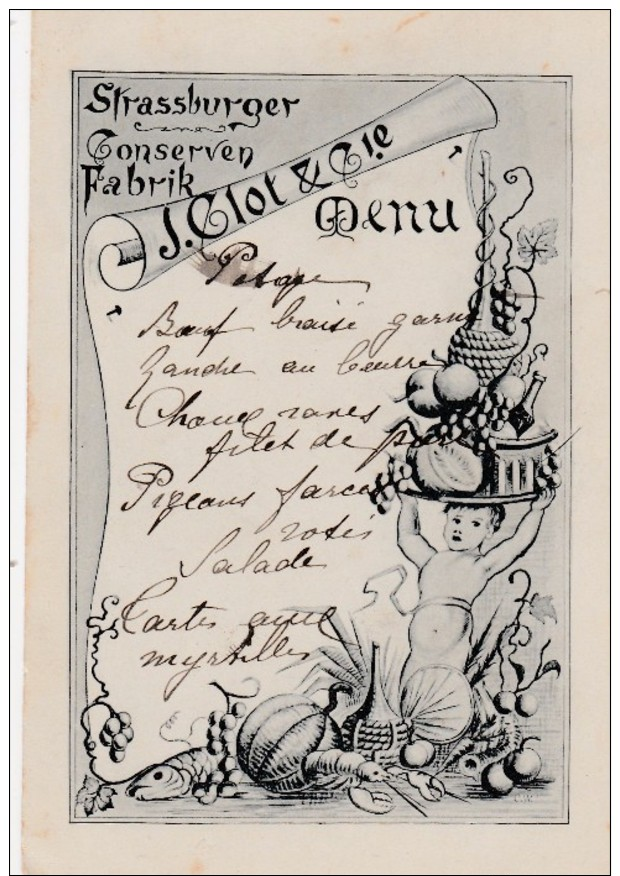 Strassburger
Conserven
Fabrik
J. Clot & Cie
Menu
Potage
Bœuf braisé garni
Zandre au beurre
Choux raves
filet de porc
Pigeons farcis
rotis
Salade
Tartes aux
myrtilles